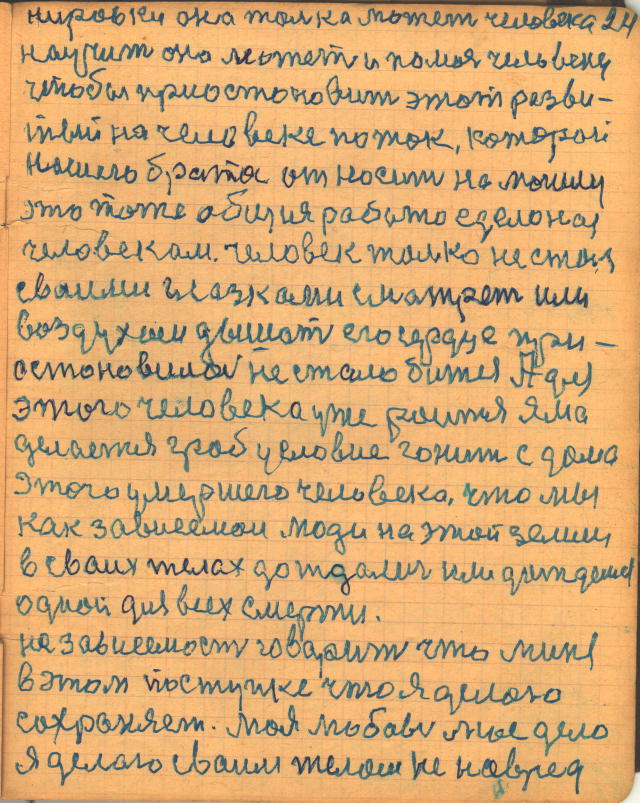 нировки она толка может человека 24
научит она может и помоч человеку
чтобы приостоновит этот разви-
тый на человеке поток, которой
нашего брата относит на могилу
это тоже общия работа сделоная
человекам. человек толко не стал
своими глазками сматрет или
воздухам дышат его сердце при-
остоновилося не стало битея А для
этого человека уже роится яма
делается гроб условие гонит с дома
этого умершего человека, что мы
как зависемои люди на этой земли
в своих телах дождалис или дождемся
одной для всех смерти.
на зависемост говарит что мине
в этом поступке что я делаю
сохраняет. Моя любов мое дело
я делаю своим телом не навред